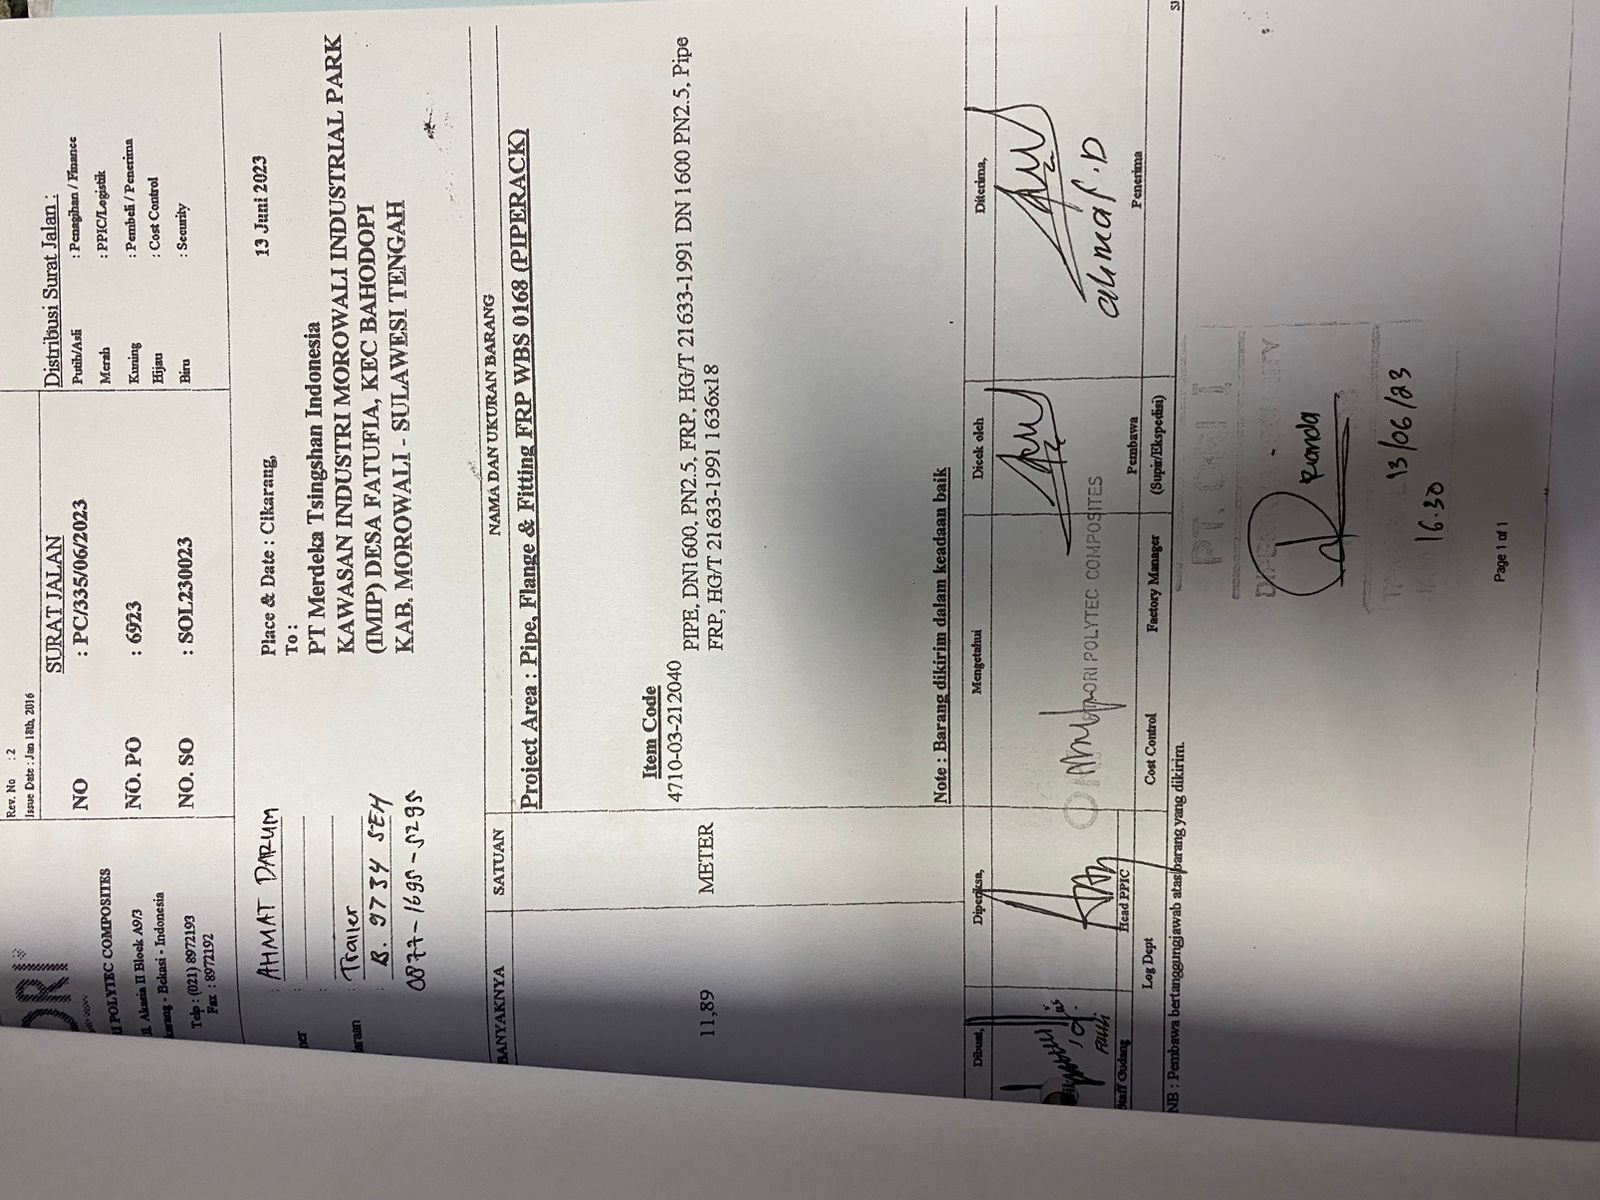 Rev. No : 2
Issue Date : Jan 18th, 2016
ORI
I POLYTEC COMPOSITES
Jl. Akasia II Block A9/3
karang - Bekasi - Indonesia
Telp : (021) 8972193
Fax : 8972192
SURAT JALAN
NO : PC/335/06/2023
NO. PO : 6923
NO. SO : SOL230023
Distribusi Surat Jalan :
Putih/Asli : Penagihan / Finance
Merah : PPIC/Logistik
Kuning : Pembeli / Penerima
Hijau : Cost Control
Biru : Security
: AHMAT DARUM
ner :
araan : Trailer
B. 9734 SEH
0877-1695-5295
Place & Date : Cikarang, 13 Juni 2023
To :
PT Merdeka Tsingshan Indonesia
KAWASAN INDUSTRI MOROWALI INDUSTRIAL PARK
(IMIP) DESA FATUFIA, KEC BAHODOPI
KAB. MOROWALI - SULAWESI TENGAH
BANYAKNYA SATUAN NAMA DAN UKURAN BARANG
Project Area : Pipe, Flange & Fitting FRP WBS 0168 (PIPERACK)
Item Code
11,89 METER 4710-03-212040 PIPE, DN1600, PN2.5, FRP, HG/T 21633-1991 DN 1600 PN2.5, Pipe
FRP, HG/T 21633-1991 1636x18
Note : Barang dikirim dalam keadaan baik
Dibuat, Diperiksa, Mengetahui Dicek oleh Diterima,
ORI POLYTEC COMPOSITES
ahmat.D
Staff Gudang Head PPIC
Log Dept Cost Control Factory Manager Pembawa
(Supir/Ekspedisi) Penerima
NB : Pembawa bertanggungjawab atas barang yang dikirim.
PT. ORI
Randa
13/06/23
16.30
Page 1 of 1